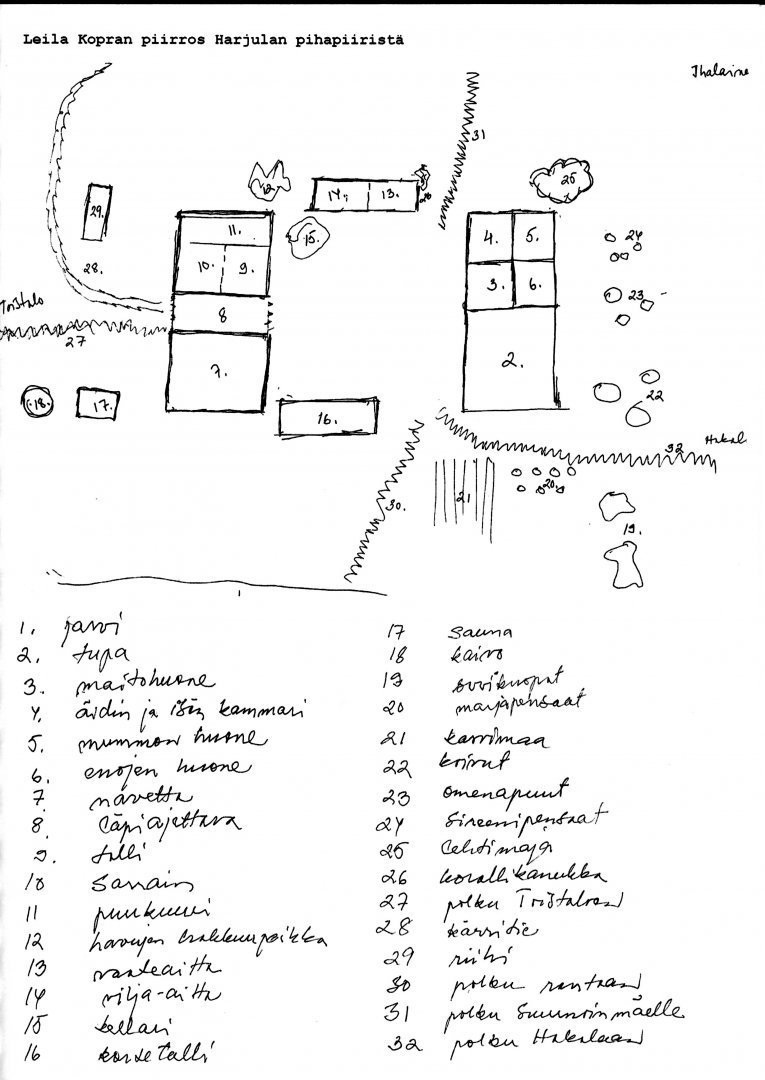 Leila Kopran piirros Harjulan pihapiiristä
Ihalaine
31
12. 14. 13. 26
25
29. 11. 15. 4. 5. 24
28. 10. 9. 3. 6. 23
8
27
7. 2.
22
18. 17. 16.
32 Hakal
30. 21 20
19.
1. järvi
2. tupa
3. maitohuone
4. äidin ja isän kammari
5. mummon huone
6. enojen huone
7 navetta
8 läpiajettava
9. talli
10 Sarrain
11 puukuuri
12 havujen hakkuupaikka
13 vaateaitta
14 vilja-aitta
15 kellari
16 konetalli
17 sauna
18 kaivo
19 suvikuopat
20 marjapensaat
21 kasvimaa
22 koivut
23 omenapuut
24 Sireenipensaat
25 lehtimaja
26 korallikanukka
27 polku Tristaloon
28 kärritie
29 riihi
30 polku rantaan
31 polku Suursoinmäelle
32 polku Hakalaan